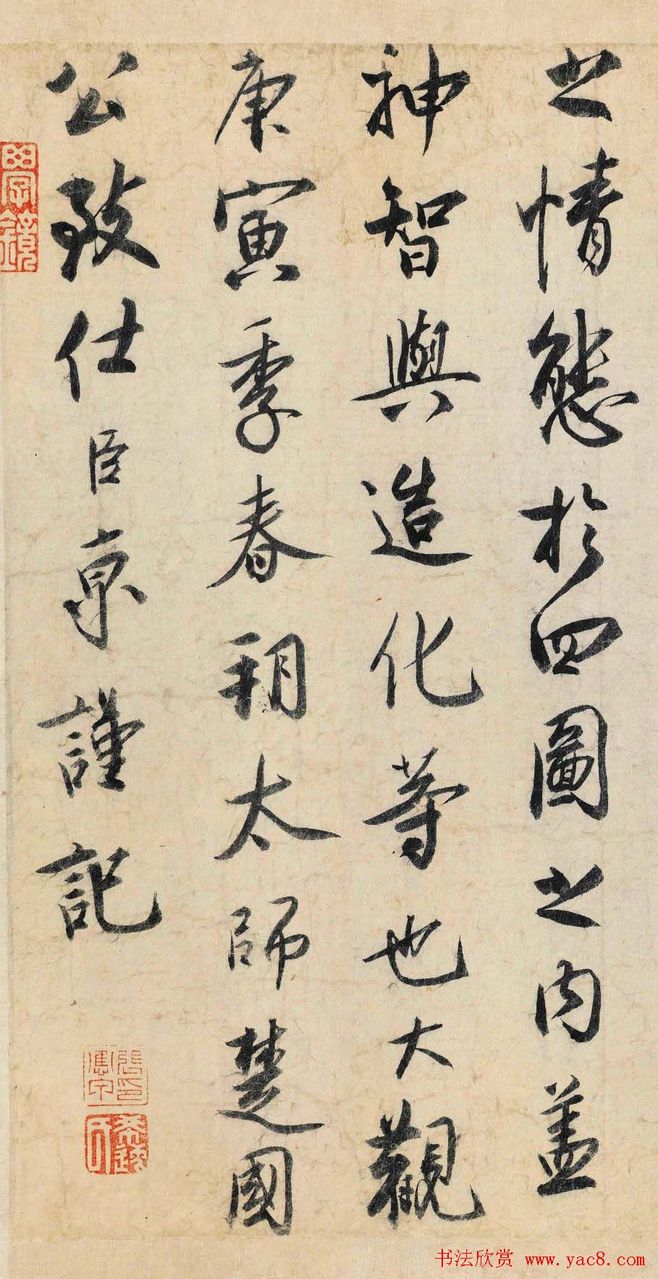 之情態於四圖之内盖
神智與造化等也大觀
庚寅季春朔太師楚國
公致仕臣京謹記
书法欣赏 www.yac8.com